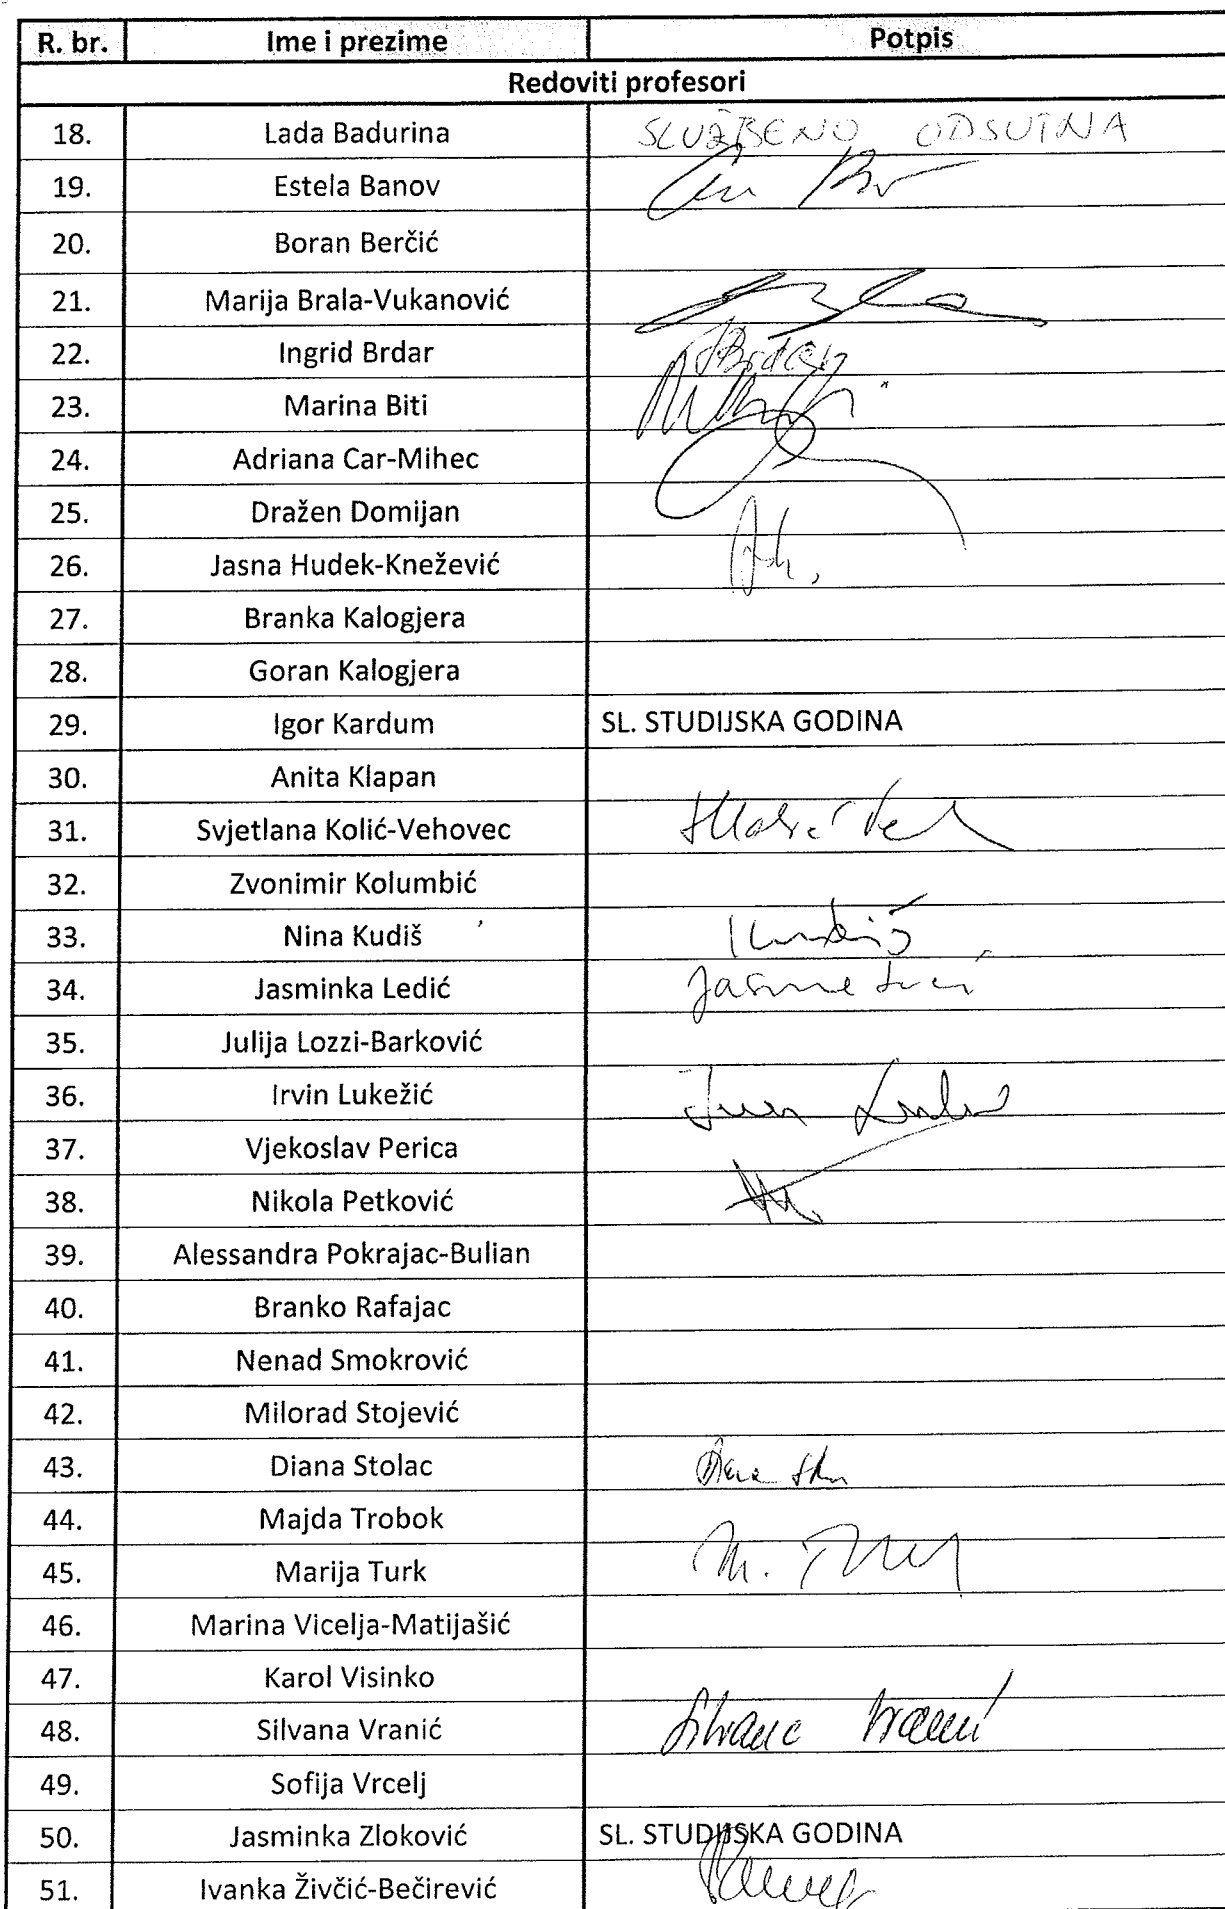 R. br. Ime i prezime Potpis
Redoviti profesori
18. Lada Badurina SLUŽBENO ODSUTNA
19. Estela Banov
20. Boran Berčić
21. Marija Brala-Vukanović
22. Ingrid Brdar IBrdar
23. Marina Biti
24. Adriana Car-Mihec
25. Dražen Domijan
26. Jasna Hudek-Knežević
27. Branka Kalogjera
28. Goran Kalogjera
29. Igor Kardum SL. STUDIJSKA GODINA
30. Anita Klapan
31. Svjetlana Kolić-Vehovec
32. Zvonimir Kolumbić
33. Nina Kudiš Kudiš
34. Jasminka Ledić
35. Julija Lozzi-Barković
36. Irvin Lukežić
37. Vjekoslav Perica
38. Nikola Petković
39. Alessandra Pokrajac-Bulian
40. Branko Rafajac
41. Nenad Smokrović
42. Milorad Stojević
43. Diana Stolac
44. Majda Trobok
45. Marija Turk M. Turk
46. Marina Vicelja-Matijašić
47. Karol Visinko
48. Silvana Vranić Silvana Vranić
49. Sofija Vrcelj
50. Jasminka Zloković SL. STUDIJSKA GODINA
51. Ivanka Živčić-Bečirević